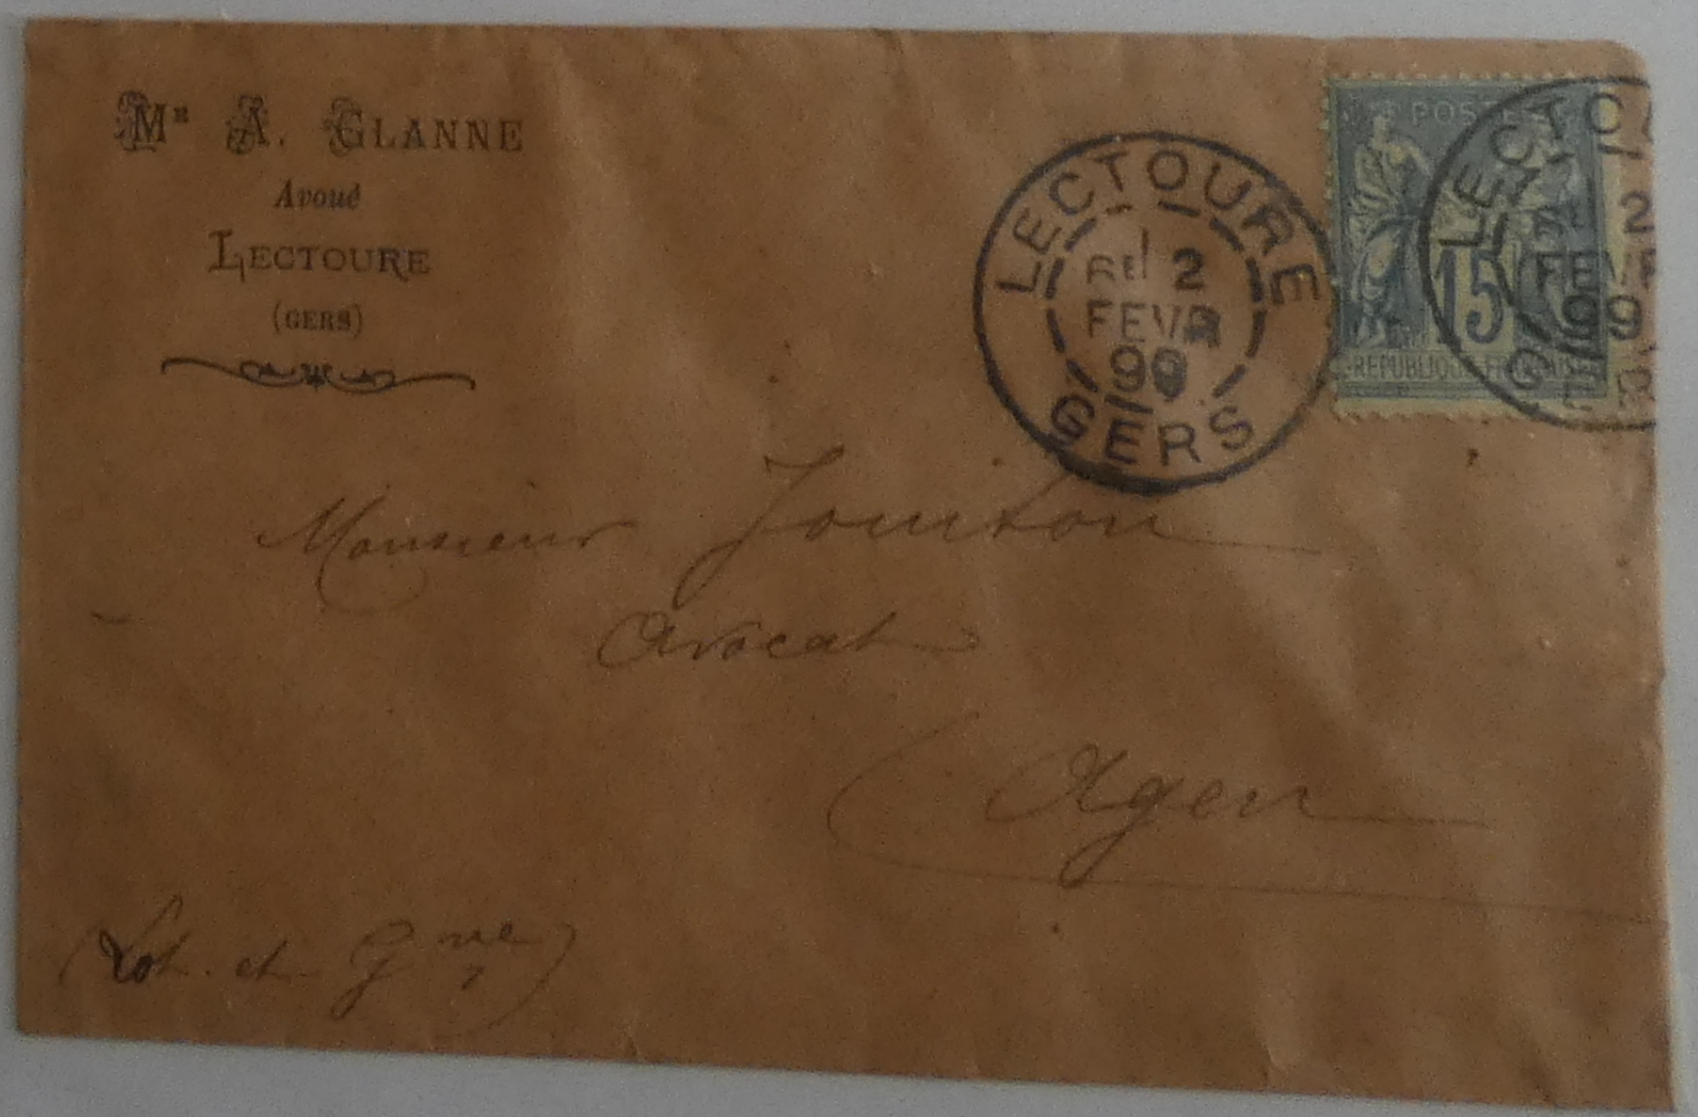 Mᴱ A. GLANNE
Avoué
LECTOURE
(GERS)
LECTOURE
2
FEVR
99
GERS
POSTES
15
REPUBLIQUE FRANÇAISE
LECTO
2
FEVR
99
G
Monsieur Jouitou
Avocat
Agen
(Lot et Gne)